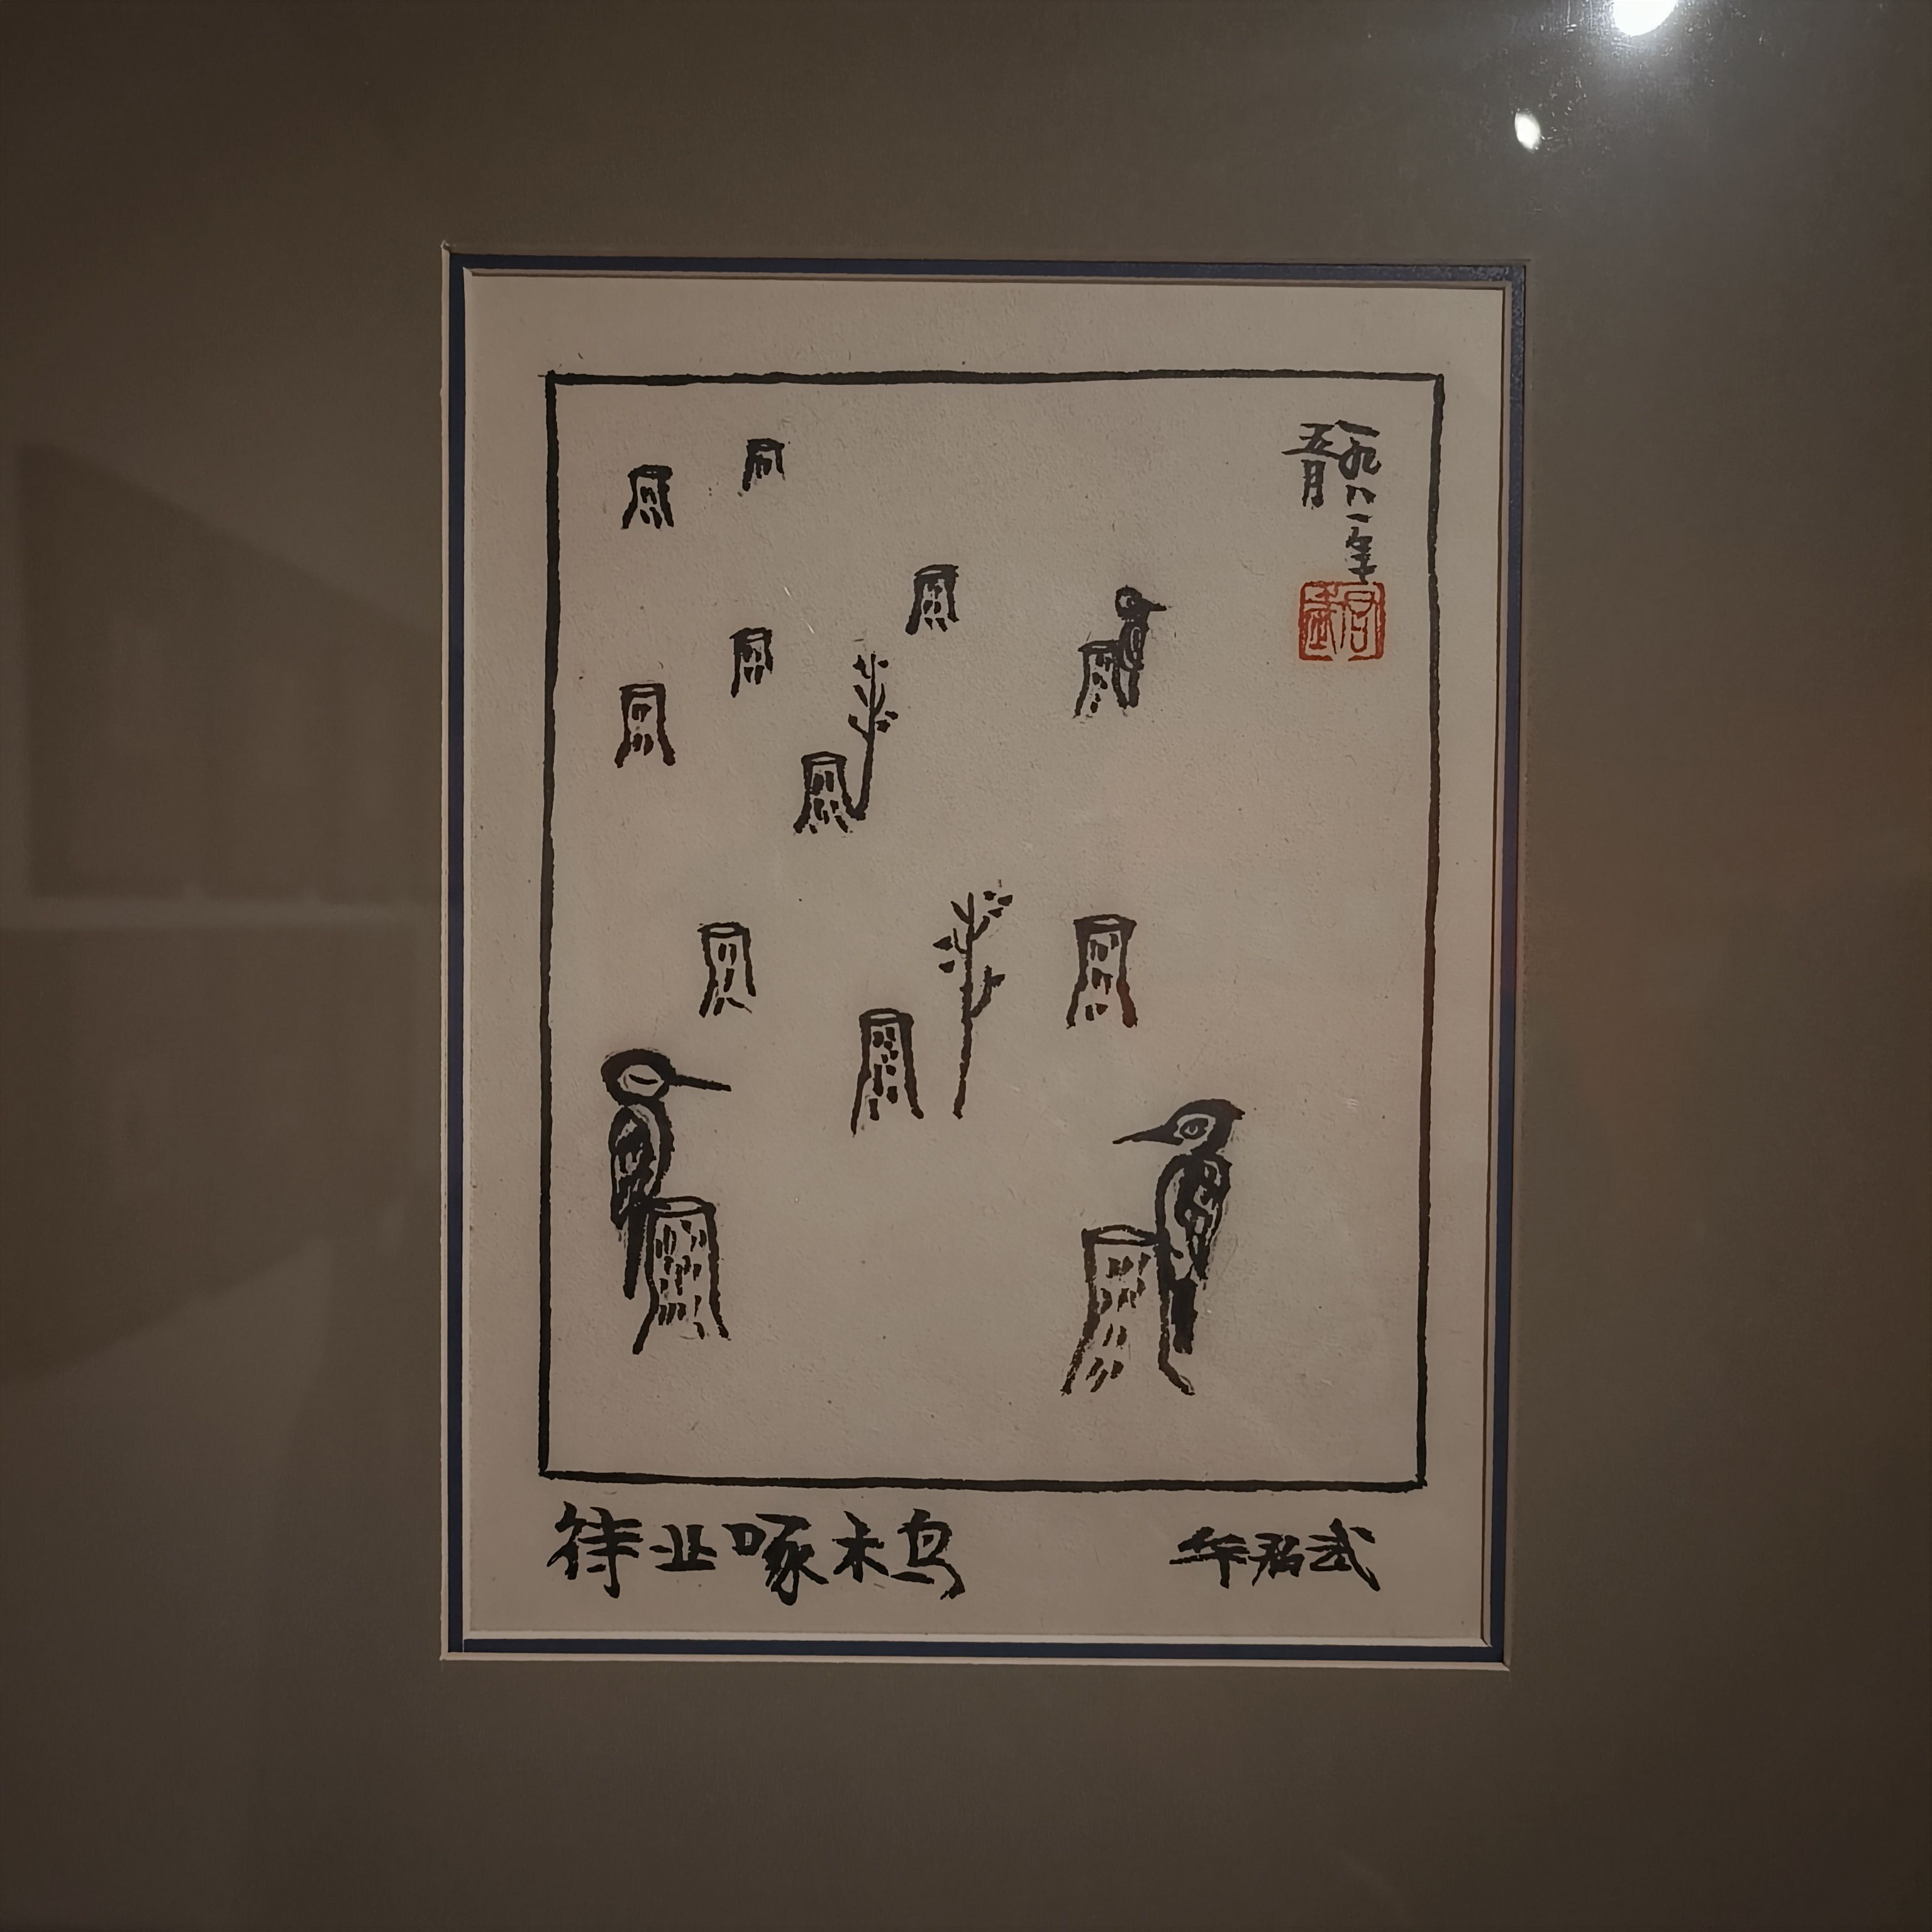 一九八一年
五月
君武
待业啄木鸟
华君武